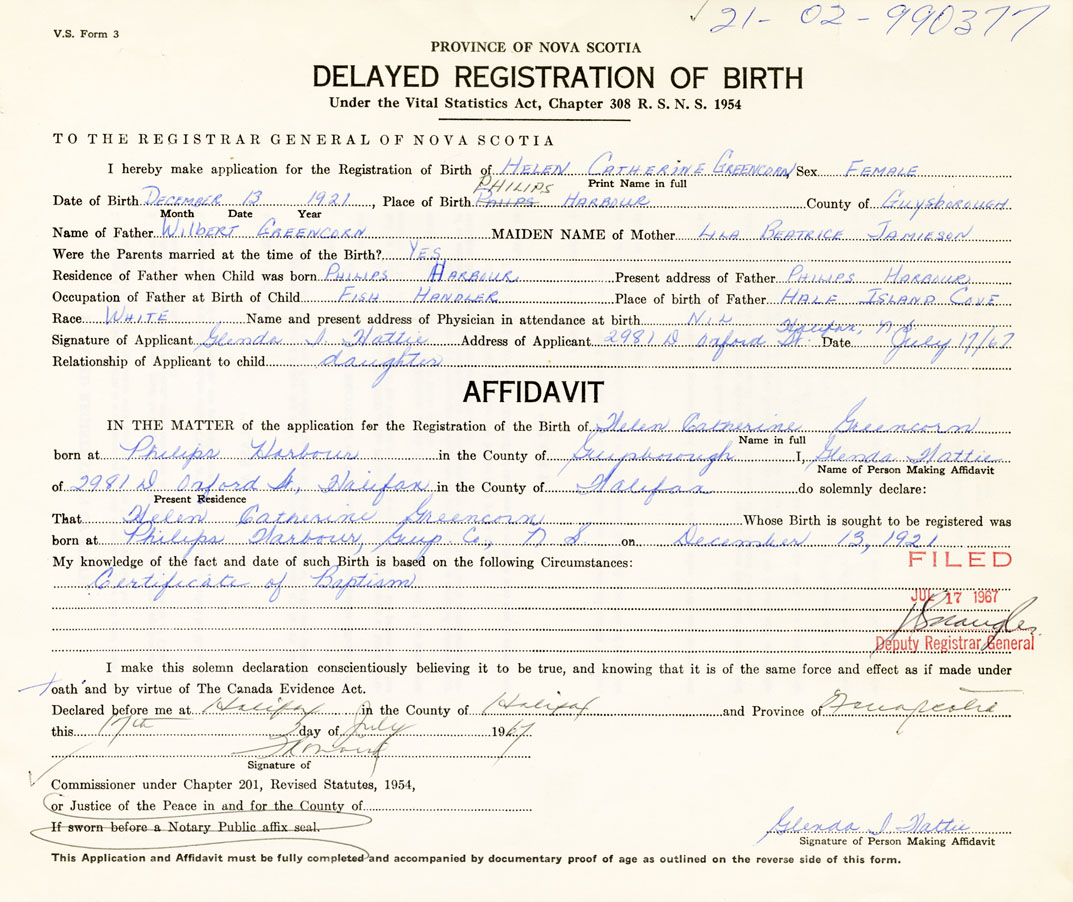 21-02-990377
V.S. Form 3
PROVINCE OF NOVA SCOTIA
DELAYED REGISTRATION OF BIRTH
Under the Vital Statistics Act, Chapter 308 R. S. N. S. 1954
TO THE REGISTRAR GENERAL OF NOVA SCOTIA
I hereby make application for the Registration of Birth of HELEN CATHERINE GREENCORN Sex FEMALE
Print Name in full
PHILIPS
Date of Birth DECEMBER 13 1921, Place of Birth PHLIPS HARBOUR County of GUYSBOROUGH
Month Date Year
Name of Father WILBERT GREENCORN MAIDEN NAME of Mother LILA BEATRICE JAMIESON
Were the Parents married at the time of the Birth? YES
Residence of Father when Child was born PHILIPS HARBOUR Present address of Father PHILIPS HARBOUR
Occupation of Father at Birth of Child FISH HANDLER Place of birth of Father HALE ISLAND COVE
Race WHITE Name and present address of Physician in attendance at birth NIL
Halifax, N.S.
Signature of Applicant Glenda I Hattie Address of Applicant 2981 D Oxford St. Date July 17/67
Relationship of Applicant to child daughter
AFFIDAVIT
IN THE MATTER of the application for the Registration of the Birth of Helen Catherine Greencorn
Name in full
born at Philips Harbour in the County of Guysborough I, Glenda Hattie
Name of Person Making Affidavit
of 2981 D Oxford St., Halifax in the County of Halifax do solemnly declare:
Present Residence
That Helen Catherine Greencorn Whose Birth is sought to be registered was
born at Philips Harbour, Guy. Co., N S on December 13, 1921
My knowledge of the fact and date of such Birth is based on the following Circumstances:
FILED
Certificate of Baptism
JUL 17 1967
Deputy Registrar General
I make this solemn declaration conscientiously believing it to be true, and knowing that it is of the same force and effect as if made under
oath and by virtue of The Canada Evidence Act.
Declared before me at Halifax in the County of Halifax and Province of Nova Scotia
this 17th day of July 1967
Signature of
Commissioner under Chapter 201, Revised Statutes, 1954,
or Justice of the Peace in and for the County of
If sworn before a Notary Public affix seal.
Glenda I Hattie
Signature of Person Making Affidavit
This Application and Affidavit must be fully completed and accompanied by documentary proof of age as outlined on the reverse side of this form.